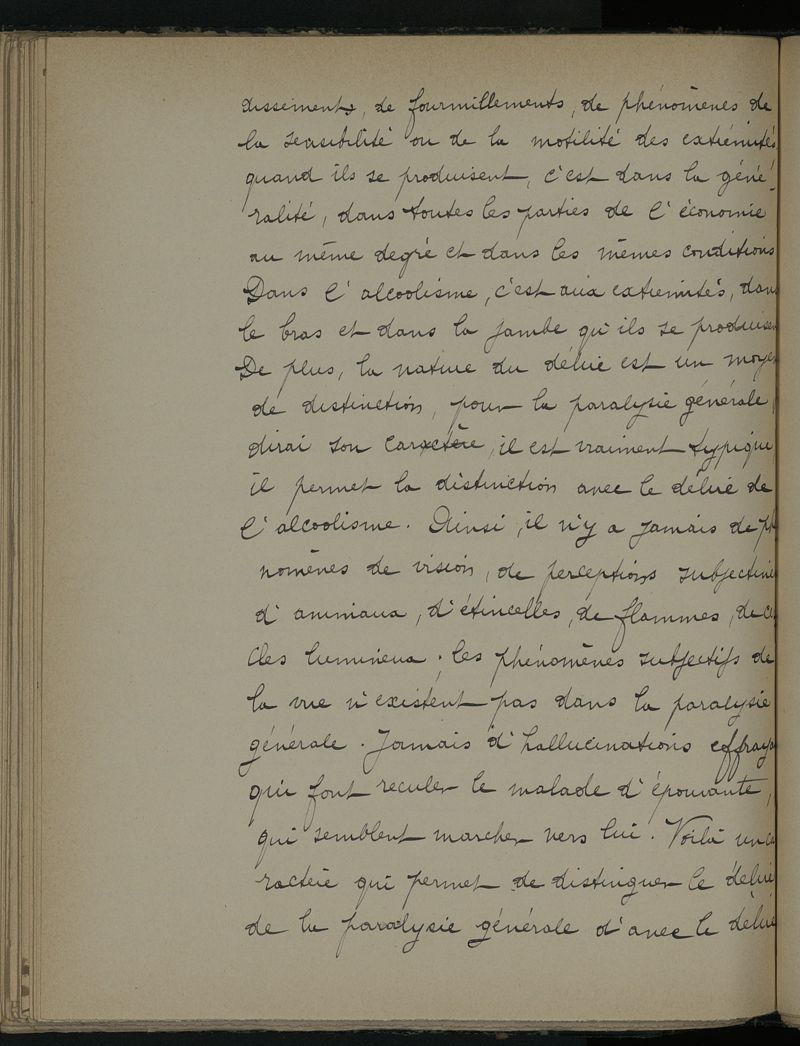 dissements, de fourmillements, de phénomènes de
la sensibilité ou de la motilité des extrémités
quand ils se produisent, c'est dans la géné-
ralité, dans toutes les parties de l'économie
au même degré et dans les mêmes conditions
Dans l'alcoolisme, c'est aux extrémités, dans
le bras et dans la jambe qu'ils se produisen
De plus, la nature du délire est un moyen
de distinction, pour la paralysie générale,
dirai son caractère, il est vraiment typique,
il permet la distinction avec le délire de
l'alcoolisme. Ainsi, il n'y a jamais de phé
nomènes de vision, de perceptions subjective
d'animaux, d'étincelles, de flammes, de cer
cles lumineux ; les phénomènes subjectifs de
la vue n'existent pas dans la paralysie
générale. Jamais d'hallucinations effraya
qui font reculer le malade d'épouvante,
qui semblent marcher vers lui. Voilà un ca
ractère qui permet de distinguer le délire
de la paralysie générale d'avec le délire